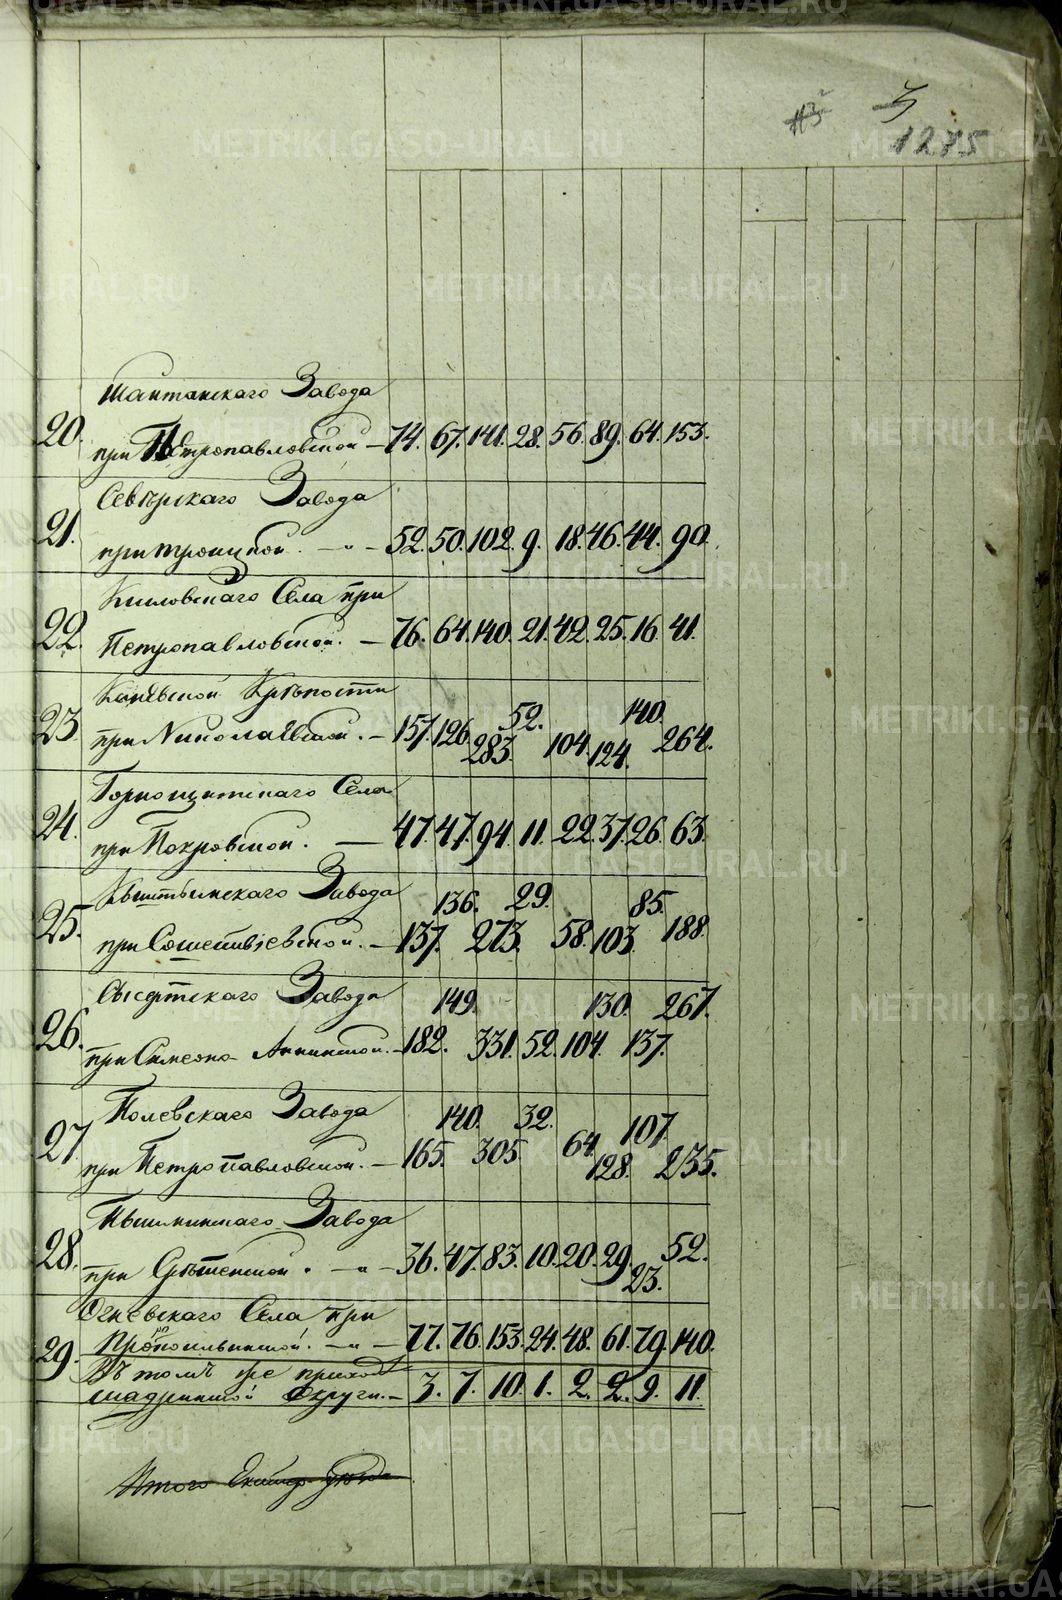 5
1285
Шайтанскаго Завода
20. при Петропавловской — 74. 67. 141. 28. 56. 89. 64. 153.
Севѣрскаго Завода
21. при Троицкой. — „ — 52. 50. 102. 9. 18. 46. 44. 90.
Кисловскаго Села при
22. Петропавловской. — 76. 64. 140. 21. 42. 25. 16. 41.
Каневской Крѣпости
23. при Николаевской. — 157. 126. 283. 52. 104. 124. 140. 264.
Горнощитскаго Села
24. при Покровской. — 47. 47. 94. 11. 22. 37. 26. 63.
Кыштымскаго Завода
25. при Сошествіевской. — 137. 136. 273. 29. 58. 103. 85. 188.
Сысертскаго Завода
26. при Симеоно-Аннинской. — 182. 149. 331. 52. 104. 130. 137. 267.
Полевскаго Завода
27. при Петропавловской. — 165. 140. 305. 32. 64. 128. 107. 235.
Пышминскаго Завода
28. при Срѣтенской. — „ — 36. 47. 83. 10. 20. 29. 23. 52.
Огневскаго Села при
29. Прокопьевской. — „ — 77. 76. 153. 24. 48. 61. 79. 140.
Въ томъ же приходѣ
Шадринской Округи. — 3. 7. 10. 1. 2. 2. 9. 11.
Итого Екатер. уѣзда
METRIKI.GASO-URAL.RU